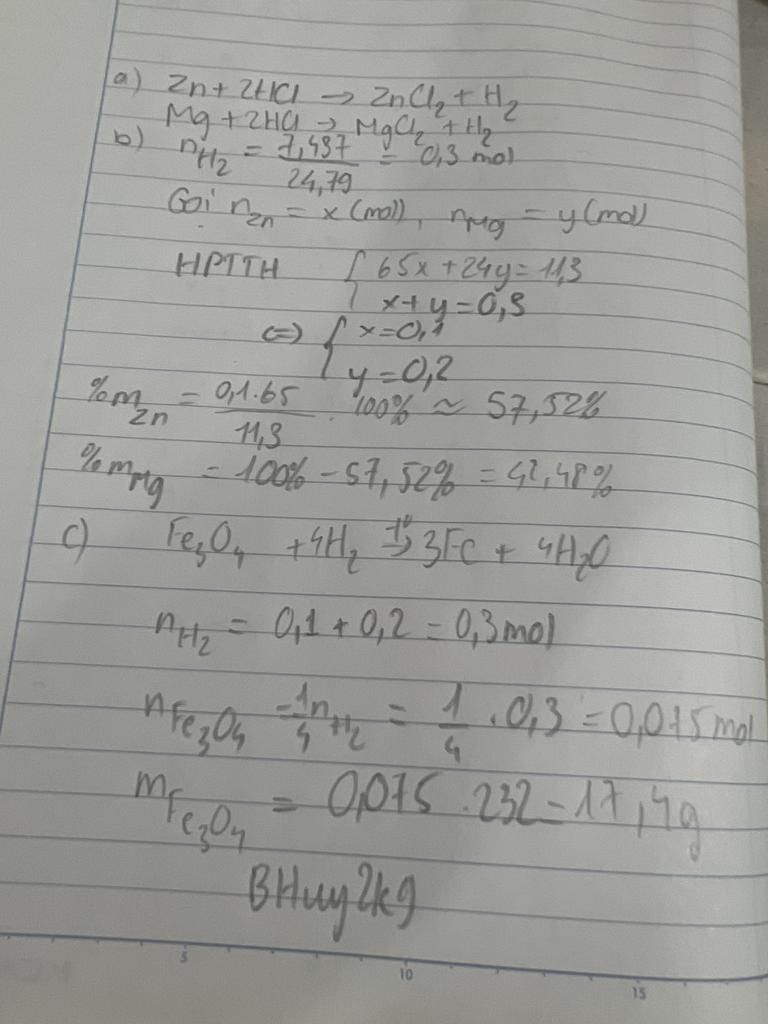 a) Zn + 2HCl → ZnCl₂ + H₂
Mg + 2HCl → MgCl₂ + H₂
b) nH₂ = 7,437/24,79 = 0,3 mol
Gọi nZn = x (mol), nMg = y (mol)
HPTTH { 65x + 24y = 11,3
x + y = 0,3
<=> { x = 0,1
y = 0,2
%mZn = 0,1.65/11,3 . 100% ≈ 57,52%
%mMg = 100% - 57,52% = 42,48%
c) Fe₃O₄ + 4H₂ t°→ 3Fe + 4H₂O
nH₂ = 0,1 + 0,2 = 0,3 mol
nFe₃O₄ = 1/4 nH₂ = 1/4 . 0,3 = 0,075 mol
mFe₃O₄ = 0,075 . 232 = 17,4g
BHuy2k9
5 10 15